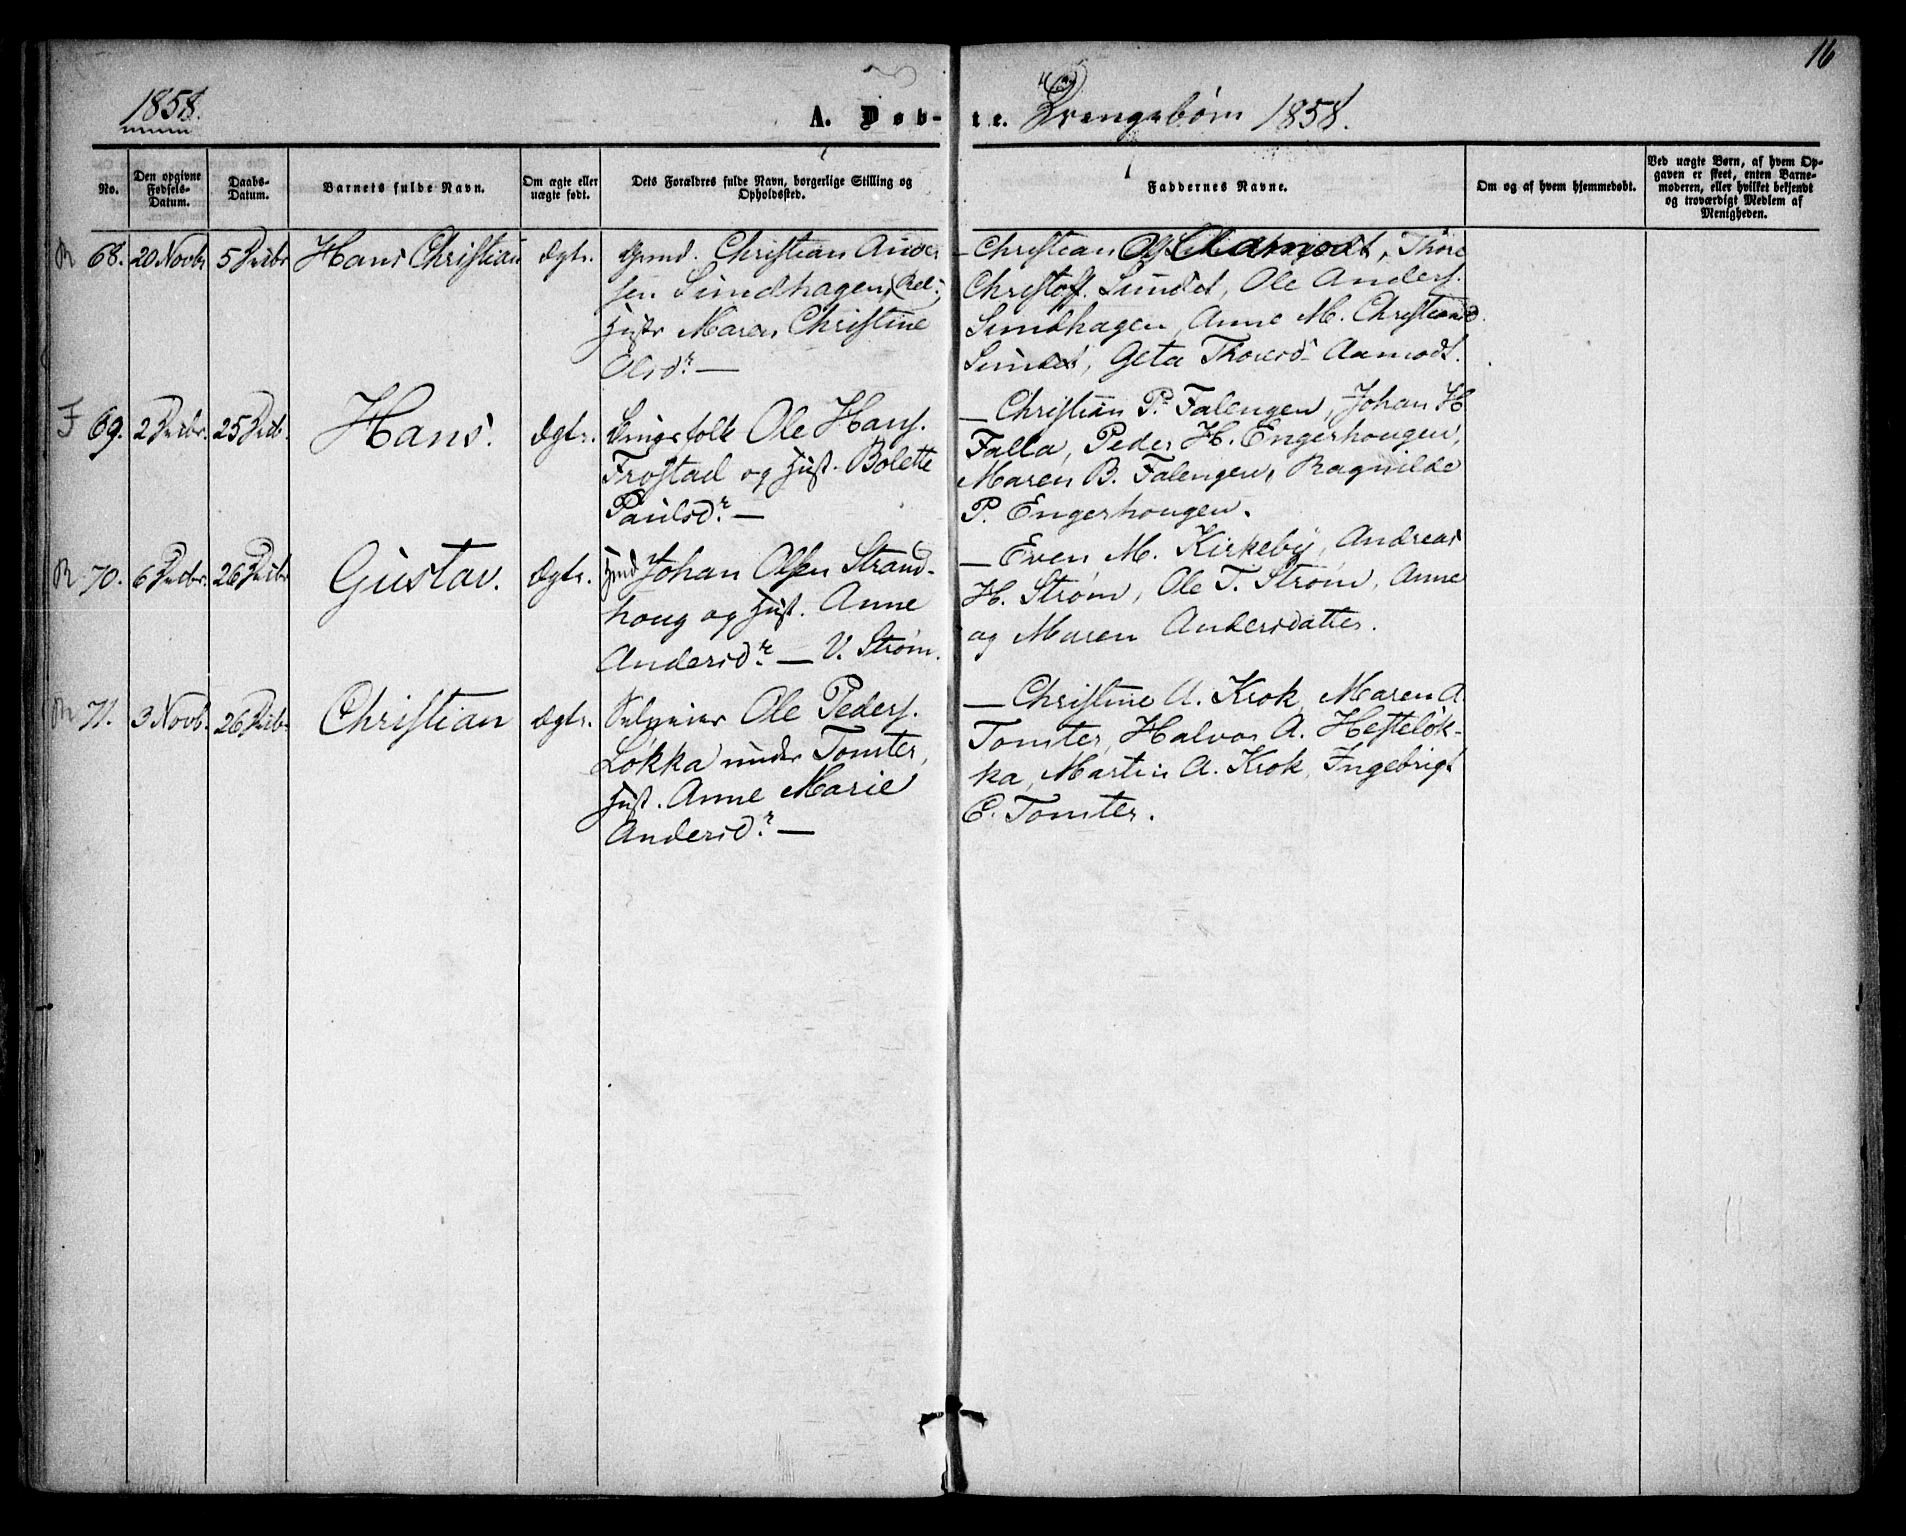 16
1858.
A. Døb-
te. Drengebørn 1858.
No.
Den opgivne Fødsels-Datum.
Daabs-Datum.
Barnets fulde Navn.
Om ægte eller uægte født.
Dets Forældres fulde Navn, borgerlige Stilling og Opholdssted.
Faddernes Navne.
Om og af hvem hjemmedøbt.
Ved uægte Børn, af hvem Opgaven er skeet, enten Barnemoderen, eller hvilket bekjendt og troværdigt Medlem af Menigheden.
R 68. 20 Novbr 5 Decbr Hans Christian ægte. Christian Ander
sen Sundhagen,
Hustr Maren Christine
Olsdr. —
— Christian Aamodt, Thore
Christoff. Sundet, Ole Anders.
Sundhagen, Anne M. Christiansd.
Sundet, Geta Thoresd. Aamodt.
F 69. 2 Decbr. 25 Decb. Hans. ægte. Ole Hans.
Frostad og Hust. Bolette
Paulsdr. —
— Christian P. Falengen, Johan H.
Falla, Peder H. Engerhougen,
Maren B. Falengen, Ragnilde
P. Engerhougen.
R 70. 6 Decbr. 26 Decbr Gustav. ægte. Gmd Johan Olsen Strand-
houg og Hust. Anne
Andersdr. — V. Strøm.
— Even M. Kirkeby, Andreas
H. Strøm, Ole T. Strøm, Anne
og Maren Andersdatter.
R 71. 3 Novb. 26 Decbr Christian ægte. Selveier Ole Peders.
Løkka under Tomter,
Hust. Anne Marie
Andersdr. —
— Christine A. Krok, Maren A.
Tomter, Halvor A. Hesteløk-
ka, Martin A. Krok, Ingebrigt
E. Tomter.